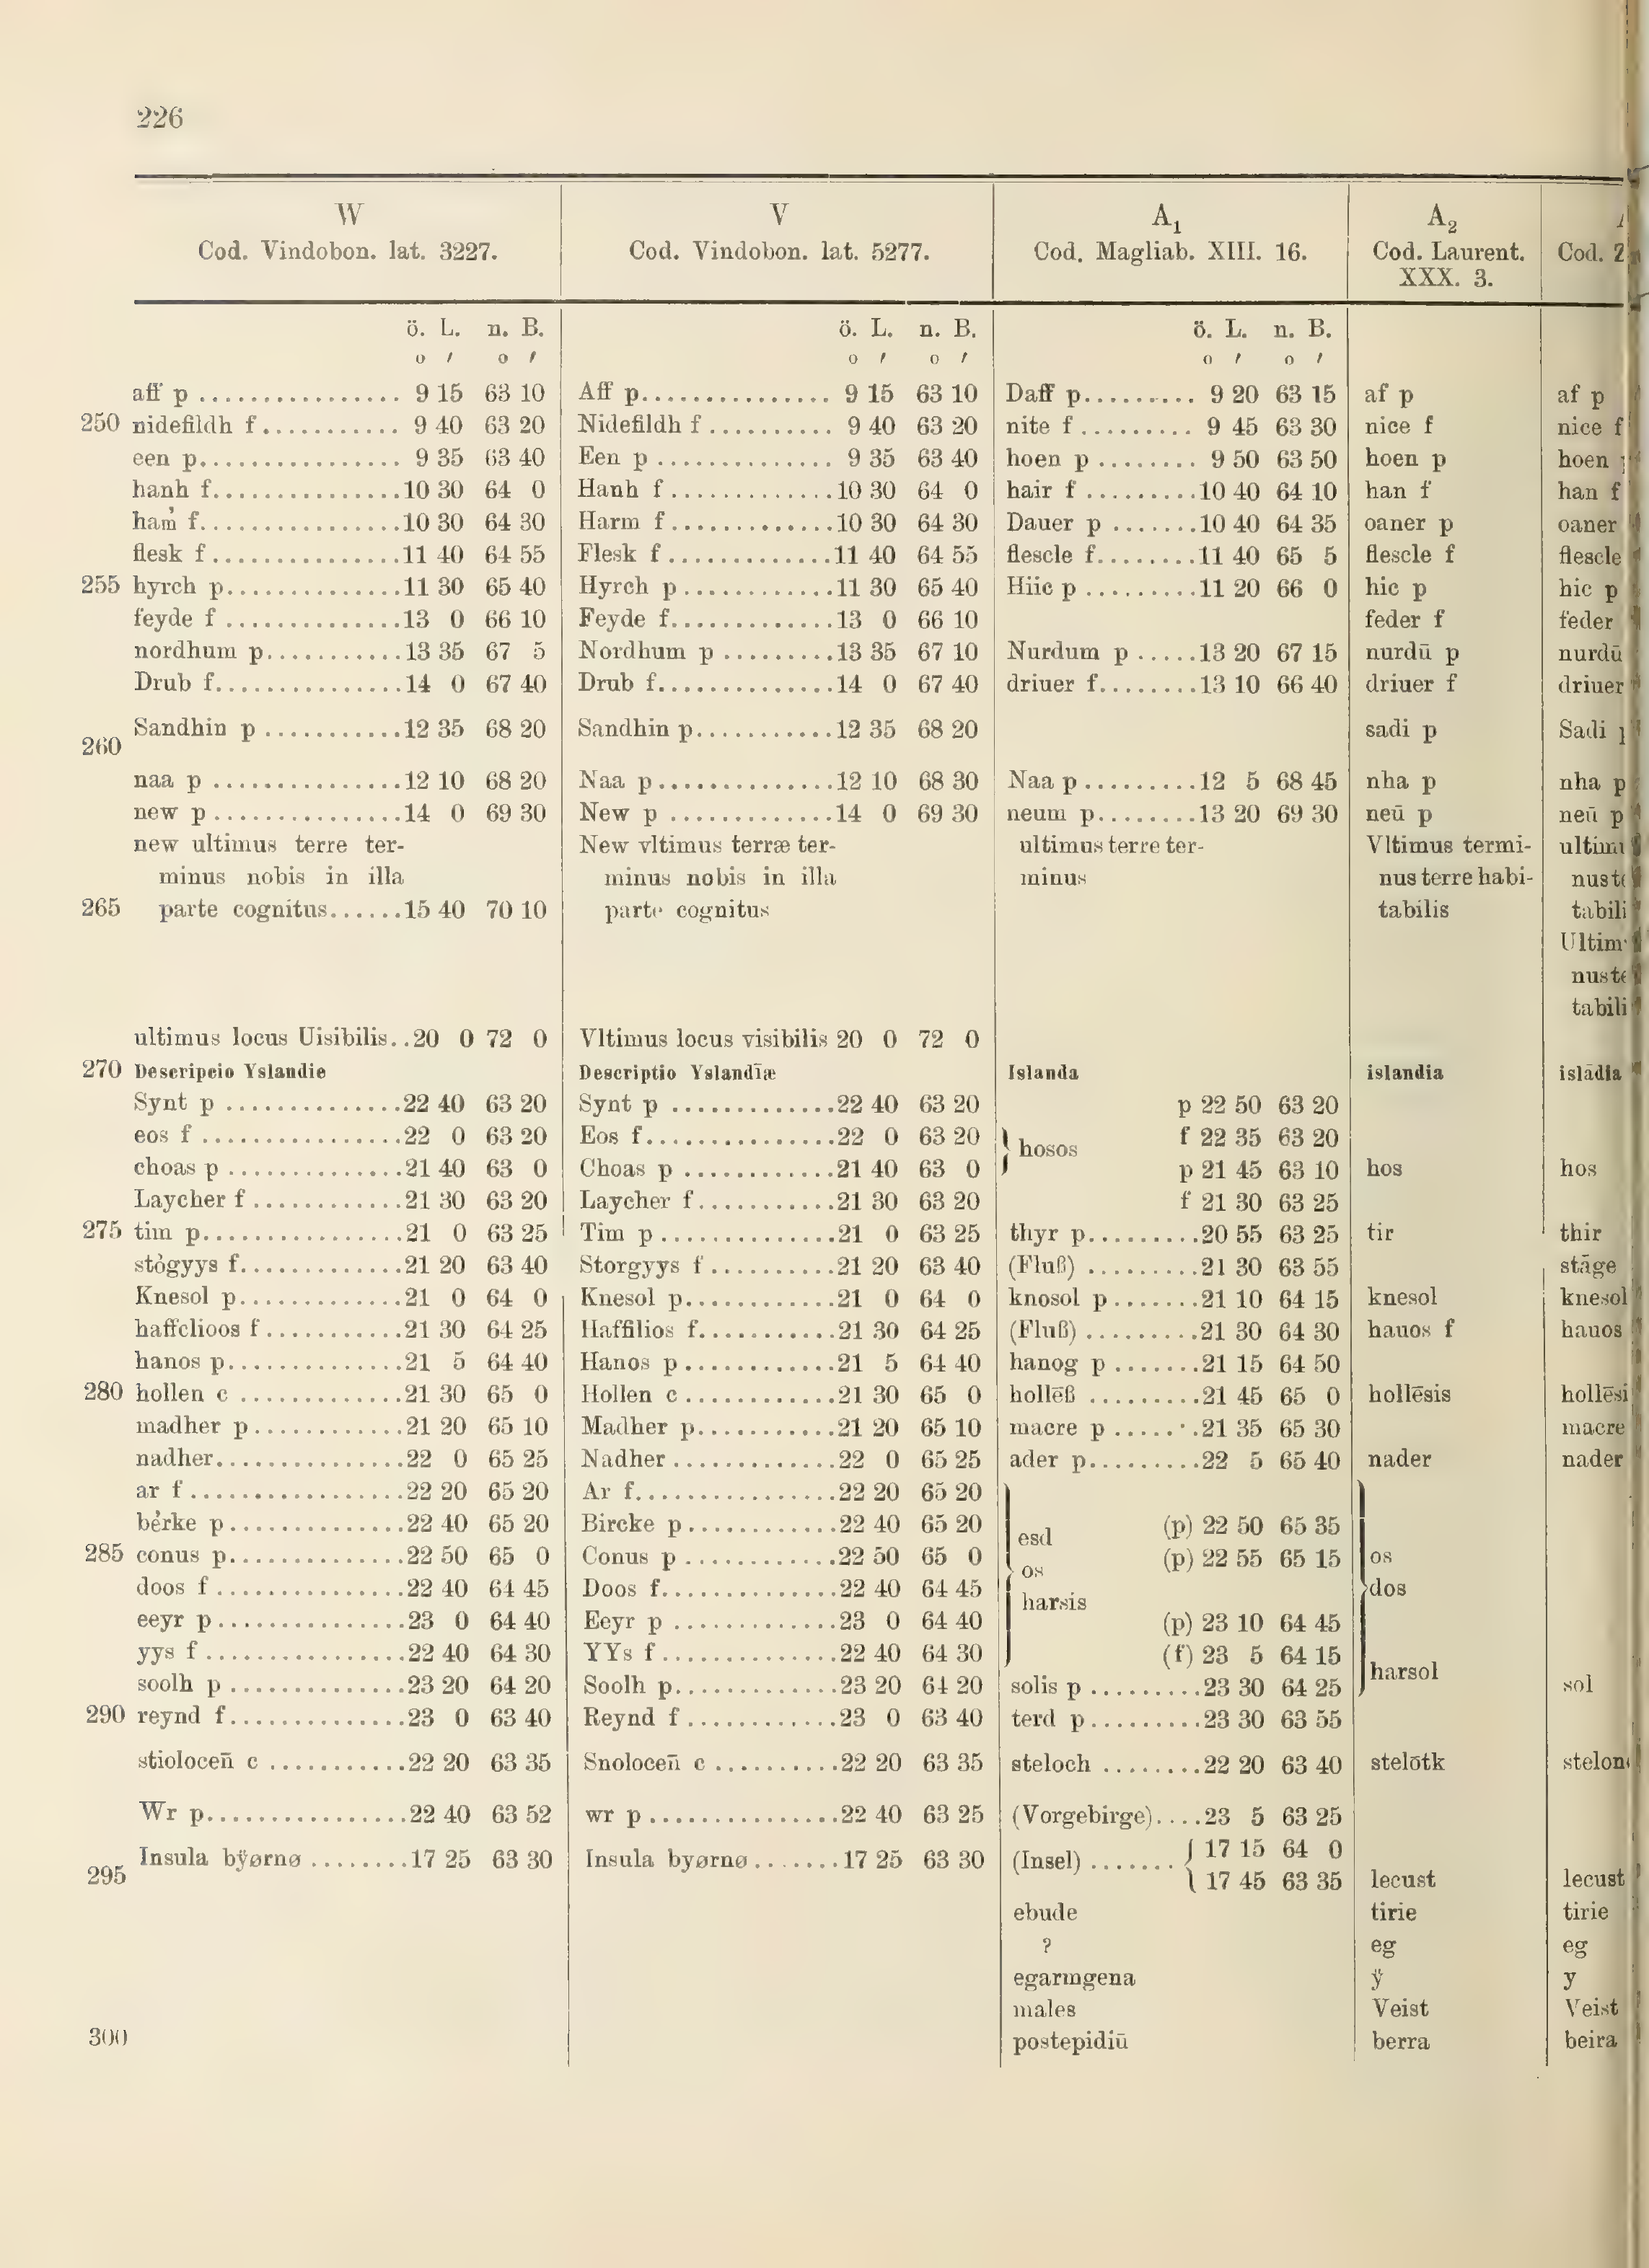 226
W V A₁ A₂
Cod. Vindobon. lat. 3227. Cod. Vindobon. lat. 5277. Cod. Magliab. XIII. 16. Cod. Laurent. Cod. 2
XXX. 3.
ö. L. n. B. ö. L. n. B. ö. L. n. B.
o ′ o ′ o ′ o ′ o ′ o ′
aff p ................ 9 15 63 10 Aff p................ 9 15 63 10 Daff p.......... 9 20 63 15 af p af p
250 nidefildh f........... 9 40 63 20 Nidefildh f.......... 9 40 63 20 nite f......... 9 45 63 30 nice f nice f
een p................ 9 35 63 40 Een p .............. 9 35 63 40 hoen p ........ 9 50 63 50 hoen p hoen
hanh f...............10 30 64 0 Hanh f.............10 30 64 0 hair f.........10 40 64 10 han f han f
ham̓ f................10 30 64 30 Harm f.............10 30 64 30 Dauer p .......10 40 64 35 oaner p oaner
flesk f...............11 40 64 55 Flesk f.............11 40 64 55 flescle f........11 40 65 5 flescle f flescle
255 hyrch p..............11 30 65 40 Hyrch p............11 30 65 40 Hiic p .........11 20 66 0 hic p hic p
feyde f ..............13 0 66 10 Feyde f.............13 0 66 10 feder f feder
nordhum p..........13 35 67 5 Nordhum p .........13 35 67 10 Nurdum p .....13 20 67 15 nurdū p nurdū
Drub f...............14 0 67 40 Drub f..............14 0 67 40 driuer f........13 10 66 40 driuer f driuer
Sandhin p ...........12 35 68 20 Sandhin p...........12 35 68 20 sadi p Sadi
260
naa p ...............12 10 68 20 Naa p..............12 10 68 30 Naa p.........12 5 68 45 nha p nha p
new p...............14 0 69 30 New p .............14 0 69 30 neum p........13 20 69 30 neū p neū p
new ultimus terre ter- New vltimus terræ ter- ultimus terre ter- Vltimus termi-
minus nobis in illa minus nobis in illa minus nus terre habi-
265 parte cognitus......15 40 70 10 parte cognitus tabilis tabili
Ultim
tabili
ultimus locus Uisibilis..20 0 72 0 Vltimus locus visibilis 20 0 72 0
270 Descripcio Yslandie Descriptio Yslandīæ Islanda islandia islādia
Synt p ..............22 40 63 20 Synt p .............22 40 63 20 p 22 50 63 20
eos f ................22 0 63 20 Eos f...............22 0 63 20 f 22 35 63 20
hosos
choas p ..............21 40 63 0 Choas p ............21 40 63 0 p 21 45 63 10 hos hos
Laycher f............21 30 63 20 Laycher f...........21 30 63 20 f 21 30 63 25
275 tim p................21 0 63 25 Tim p ..............21 0 63 25 thyr p.........20 55 63 25 tir thir
stȯgyys f.............21 20 63 40 Storgyys f ..........21 20 63 40 (Fluß) .........21 30 63 55 stāge
Knesol p.............21 0 64 0 Knesol p............21 0 64 0 knosol p.......21 10 64 15 knesol knesol
haffclioos f...........21 30 64 25 Haffilios f...........21 30 64 25 (Fluß) .........21 30 64 30 hauos f hauos
hanos p..............21 5 64 40 Hanos p............21 5 64 40 hanog p .......21 15 64 50
280 hollen c .............21 30 65 0 Hollen c ............21 30 65 0 hollēß .........21 45 65 0 hollēsis hollēsi
madher p............21 20 65 10 Madher p...........21 20 65 10 macre p .......21 35 65 30 macre
nadher...............22 0 65 25 Nadher.............22 0 65 25 ader p.........22 5 65 40 nader nader
ar f..................22 20 65 20 Ar f................22 20 65 20
bėrke p..............22 40 65 20 Bircke p............22 40 65 20 (p) 22 50 65 35
esd
285 conus p..............22 50 65 0 Conus p ............22 50 65 0 (p) 22 55 65 15 os
os
doos f ...............22 40 64 45 Doos f..............22 40 64 45 dos
harsis
eeyr p...............23 0 64 40 Eeyr p .............23 0 64 40 (p) 23 10 64 45
yys f................22 40 64 30 YYs f..............22 40 64 30 (f) 23 5 64 15
harsol
soolh p ..............23 20 64 20 Soolh p.............23 20 64 20 solis p .........23 30 64 25 sol
290 reynd f..............23 0 63 40 Reynd f............23 0 63 40 terd p.........23 30 63 55
stiolocen̄ c ...........22 20 63 35 Snolocen̄ c ..........22 20 63 35 steloch ........22 20 63 40 stelōtk stelon
Wr p................22 40 63 52 wr p ...............22 40 63 25 (Vorgebirge)....23 5 63 25
17 15 64 0
Insula bÿørnø ........17 25 63 30 Insula byørnø.......17 25 63 30 (Insel) .......
295 17 45 63 35 lecust lecust
ebude tirie tirie
? eg eg
egarmgena ÿ y
males Veist Veist
300 postepidiū berra beira